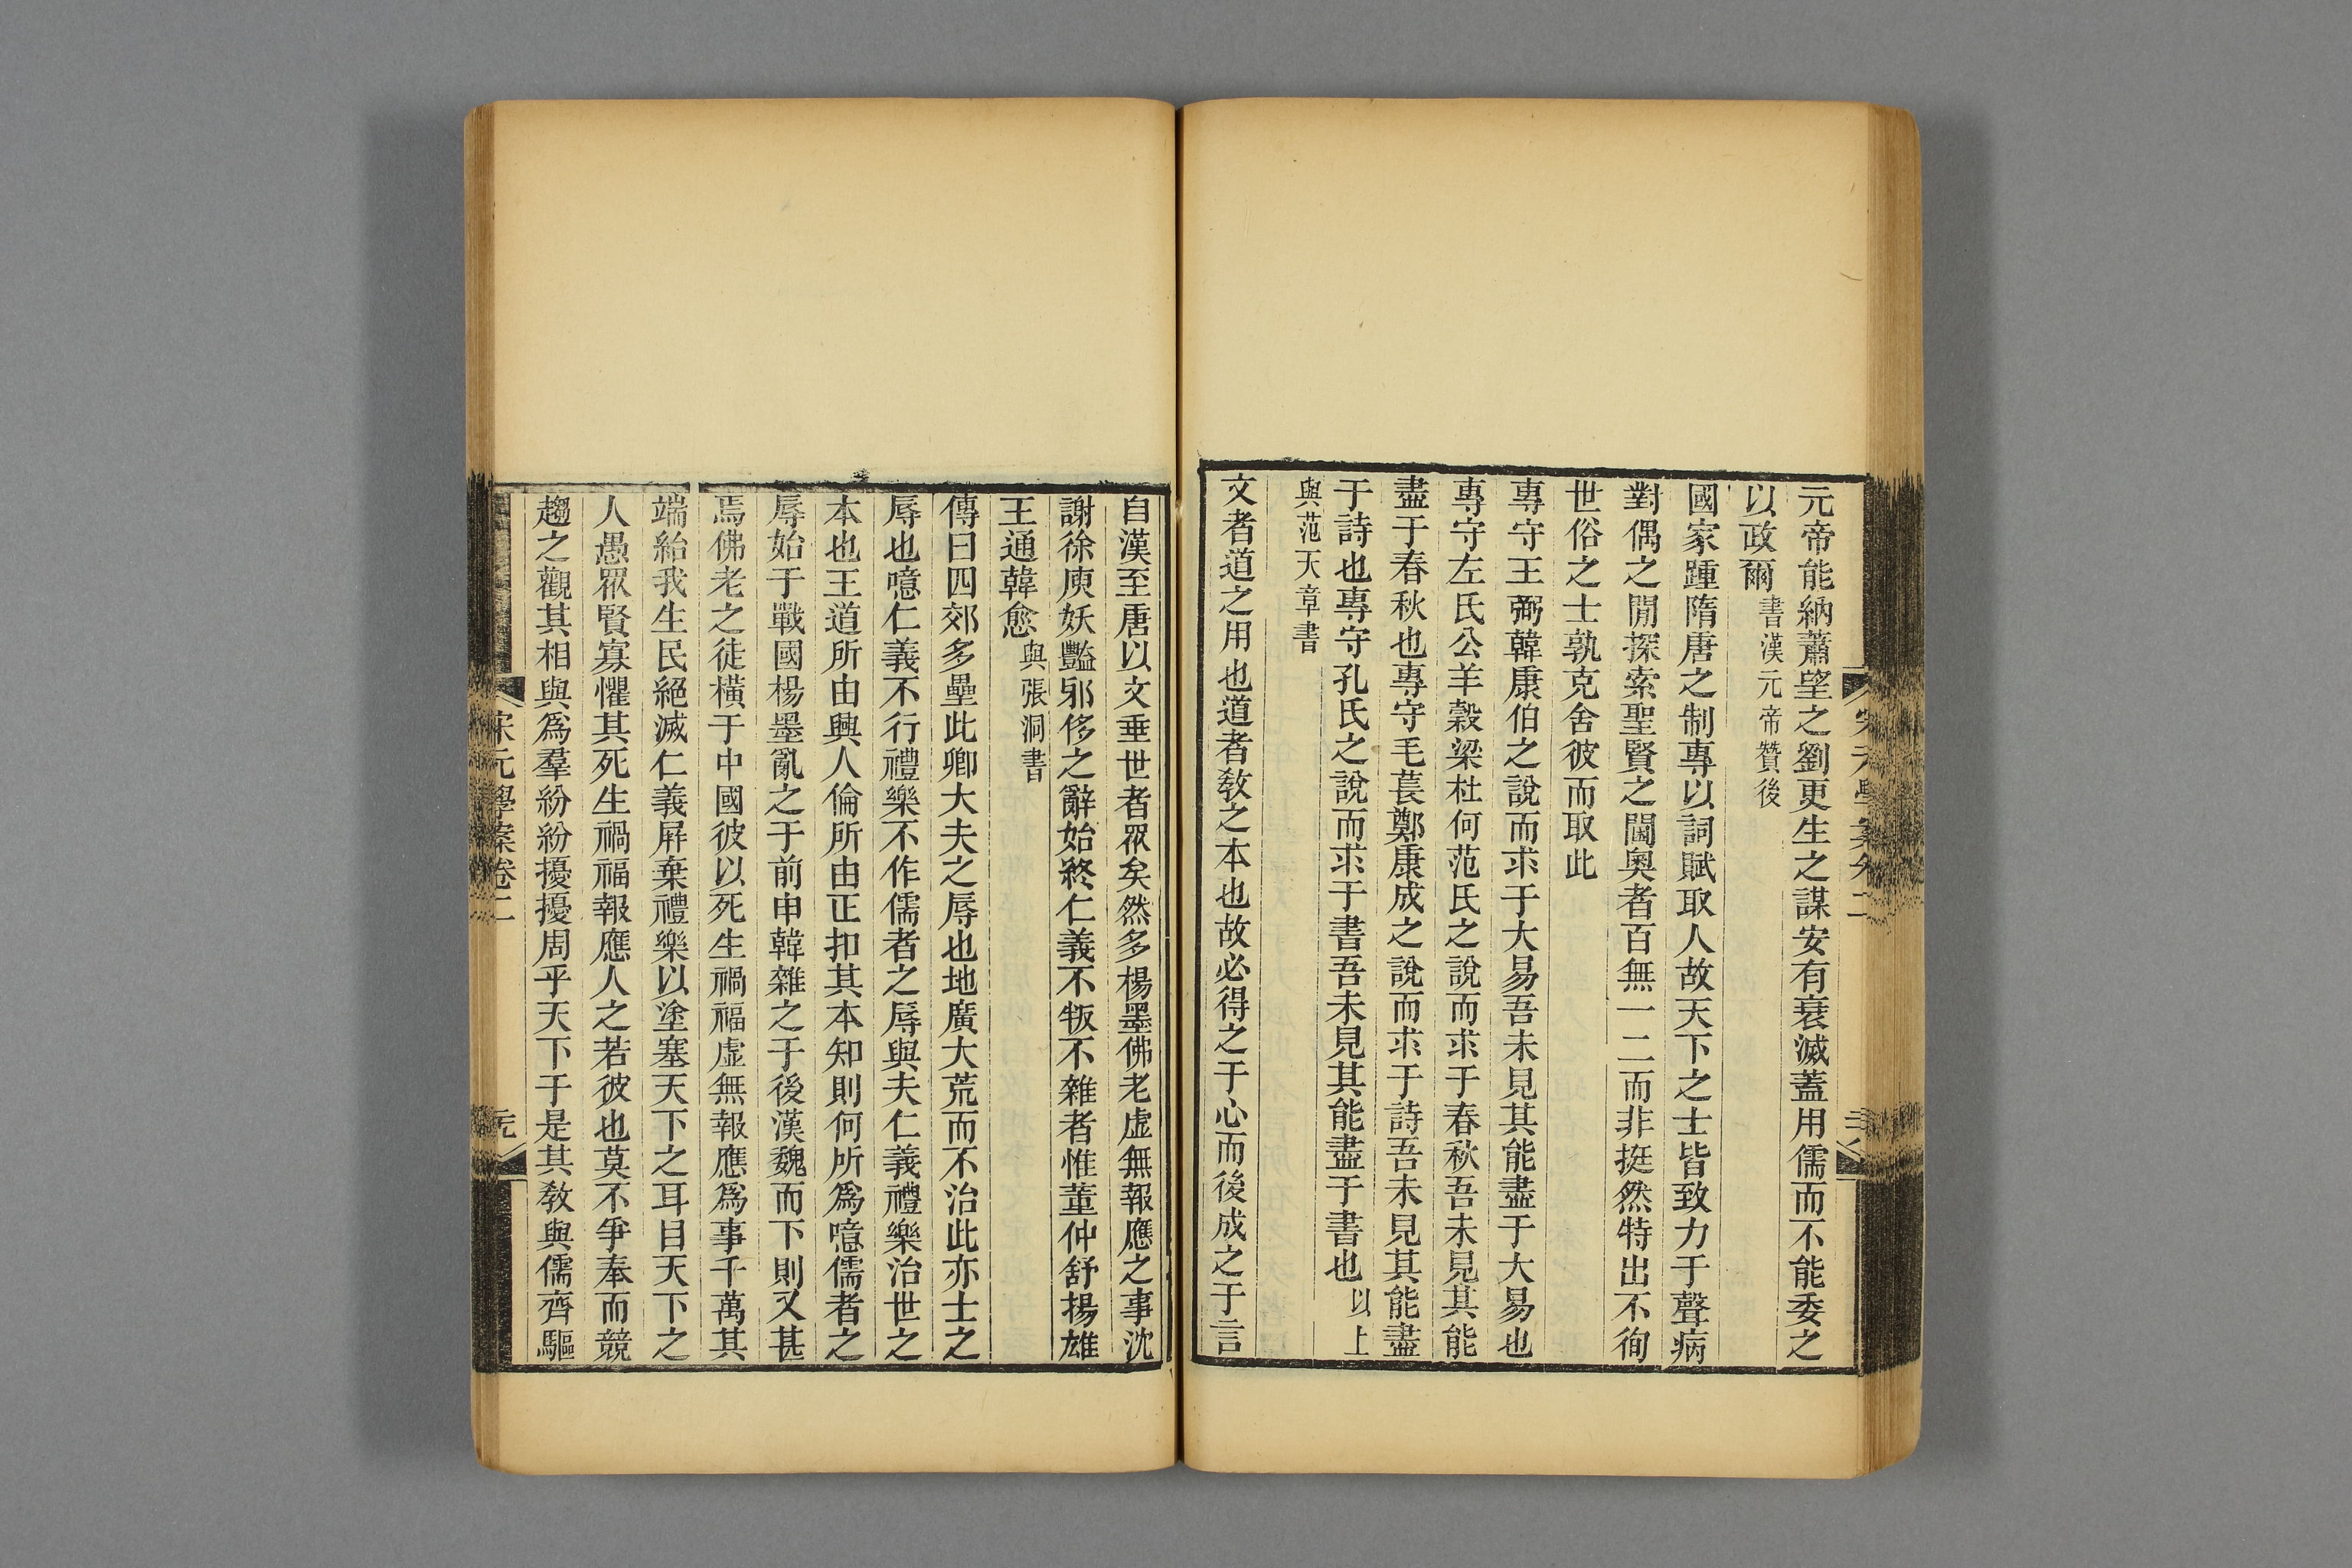 元帝能納蕭望之劉更生之謀安有衰滅蓋用儒而不能委之
以政爾書漢元帝贊後
國家踵隋唐之制專以詞賦取人故天下之士皆致力于聲病
對偶之閒探索聖賢之閫奧者百無一二而非挺然特出不徇
世俗之士孰克舍彼而取此
專守王弼韓康伯之說而求于大易吾未見其能盡于大易也
專守左氏公羊穀梁杜何范氏之說而求于春秋吾未見其能
盡于春秋也專守毛萇鄭康成之說而求于詩吾未見其能盡
于詩也專守孔氏之說而求于書吾未見其能盡于書也以上
與范天章書
文者道之用也道者敎之本也故必得之于心而後成之于言
自漢至唐以文垂世者眾矣然多楊墨佛老虛無報應之事沈
謝徐庾妖豔邪侈之辭始終仁義不叛不雜者惟董仲舒揚雄
王通韓愈與張洞書
傳曰四郊多壘此卿大夫之辱也地廣大荒而不治此亦士之
辱也噫仁義不行禮樂不作儒者之辱與夫仁義禮樂治世之
本也王道所由興人倫所由正扣其本知則何所爲噫儒者之
辱始于戰國楊墨亂之于前申韓雜之于後漢魏而下則又甚
焉佛老之徒橫于中國彼以死生禍福虛無報應爲事千萬其
端紿我生民絕滅仁義屛棄禮樂以塗塞天下之耳目天下之
人愚眾賢寡懼其死生禍福報應人之若彼也莫不爭奉而競
趨之觀其相與爲羣紛紛擾擾周乎天下于是其敎與儒齊驅
宋元學案卷二